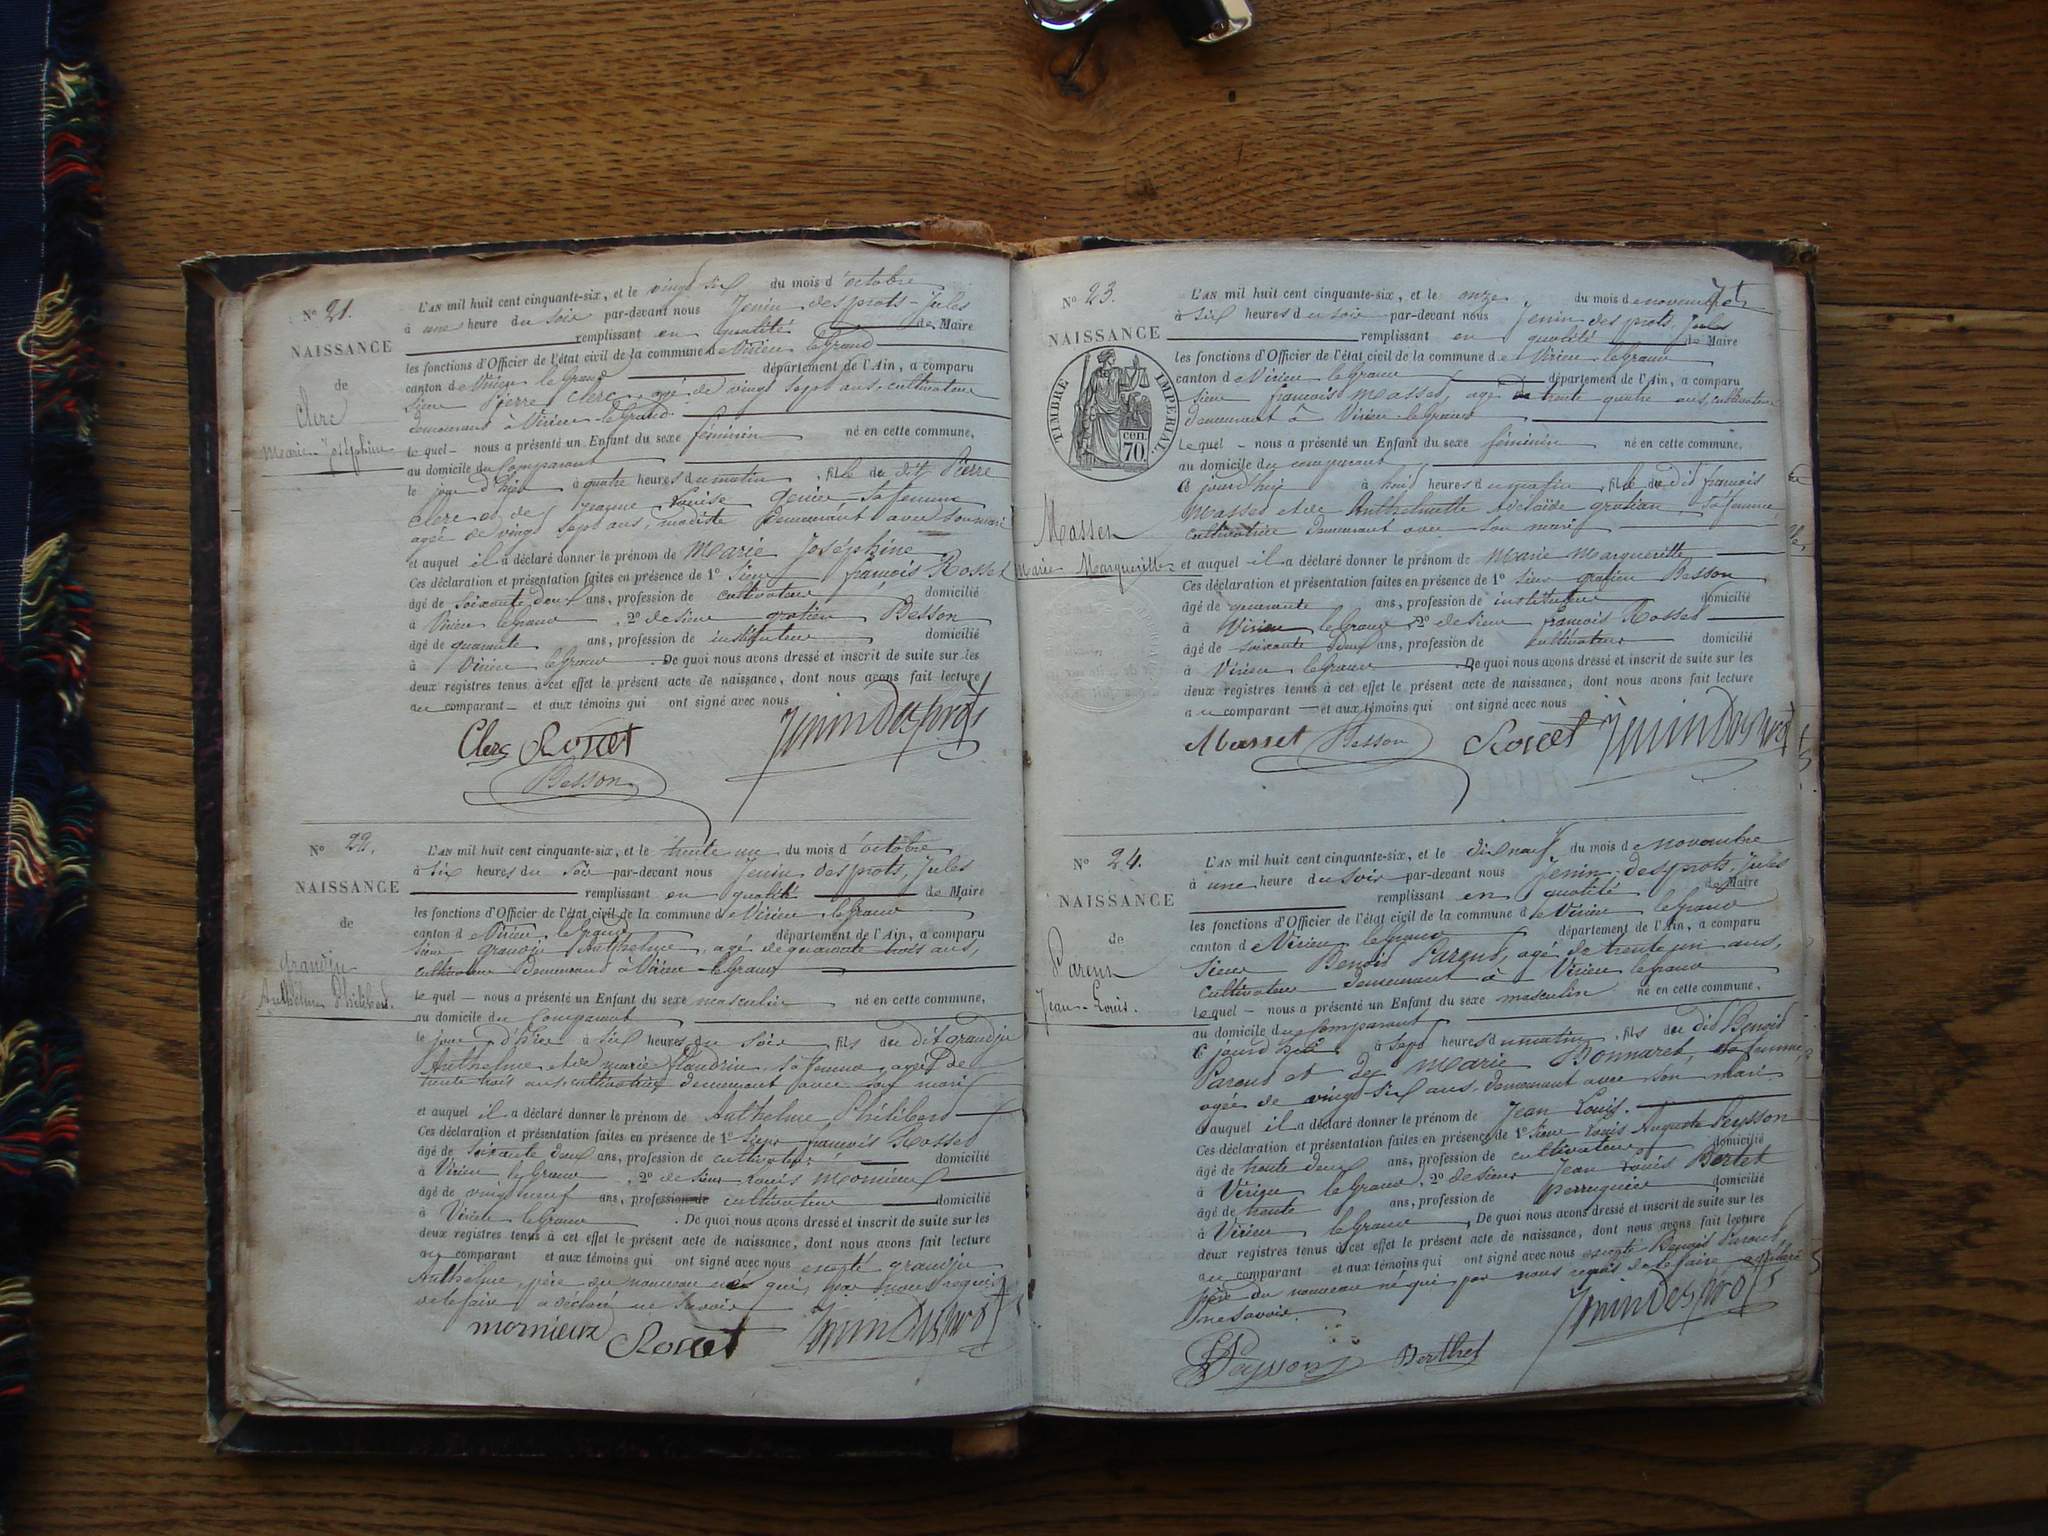 N° 21.
NAISSANCE
de
Clerc
Marie Joséphine
L'AN mil huit cent cinquante-six, et le vingt six du mois d'octobre
à une heure du soir par-devant nous Jenin desprots, Jules
remplissant en qualité de Maire
les fonctions d'Officier de l'état civil de la commune de Virieu le Grand
canton de Virieu le Grand département de l'Ain, a comparu
sieur Pierre Clerc, agé de vingt sept ans, cultivateur
demeurant à Virieu le Grand
lequel nous a présenté un Enfant du sexe féminin né en cette commune,
au domicile du Comparant
le jour d'hier à quatre heures du matin, fille du dit Pierre
Clerc et de Jeanne Louise Genier sa femme
agée de vingt sept ans, modiste demeurant avec son mari
et auquel il a déclaré donner le prénom de Marie Joséphine
Ces déclaration et présentation faites en présence de 1° Sieur françois Rosset
âgé de soixante deux ans, profession de cultivateur domicilié
à Virieu le Grand, 2° de sieur gratien Besson
âgé de quarante ans, profession de instituteur domicilié
à Virieu le Grand. De quoi nous avons dressé et inscrit de suite sur les
deux registres tenus à cet effet le présent acte de naissance, dont nous avons fait lecture
au comparant et aux témoins qui ont signé avec nous
Clerc Rosset Jenin Desprots
Besson
N° 22.
NAISSANCE
de
Grandju
Anthelme Philibert.
L'AN mil huit cent cinquante-six, et le trente un du mois d'octobre
à six heures du soir par-devant nous Jenin desprots, Jules
remplissant en qualité de Maire
les fonctions d'Officier de l'état civil de la commune de Virieu le Grand
canton de Virieu le Grand département de l'Ain, a comparu
sieur Grandju Anthelme, agé de quarante trois ans,
cultivateur demeurant à Virieu le Grand
lequel nous a présenté un Enfant du sexe masculin né en cette commune,
au domicile du Comparant
le jour d'hier à six heures du soir, fils du dit grandju
Anthelme et de marie flandrin, sa femme, agée de
trente trois ans, cultivatrice demeurant avec son mari
et auquel il a déclaré donner le prénom de Anthelme Philibert
Ces déclaration et présentation faites en présence de 1° Sieur françois Rosset
âgé de soixante deux ans, profession de cultivateur domicilié
à Virieu le Grand, 2° de sieur Louis Mornieux
âgé de vingt neuf ans, profession de cultivateur domicilié
à Virieu le Grand. De quoi nous avons dressé et inscrit de suite sur les
deux registres tenus à cet effet le présent acte de naissance, dont nous avons fait lecture
au comparant et aux témoins qui ont signé avec nous excepté grandju
Anthelme, père du nouveau né qui, par nous requis
de le faire a déclaré ne Savoir
mornieux Rosset Jenin Desprots
N° 23.
NAISSANCE
TIMBRE IMPERIAL.
CEN. 70.
Masset
Marie Marguerite
L'AN mil huit cent cinquante-six, et le onze du mois de novembre
à six heures du soir par-devant nous Jenin des prots, Jules
remplissant en qualité de Maire
les fonctions d'Officier de l'état civil de la commune de Virieu le Grand
canton de Virieu le Grand département de l'Ain, a comparu
sieur françois Masset, agé de trente quatre ans, cultivateur
demeurant à Virieu le Grand
lequel nous a présenté un Enfant du sexe féminin né en cette commune,
au domicile du comparant
ce jourd'hui à huit heures du matin, fille du dit françois
Masset et de Anthelmette Adelaïde gratian, sa femme
cultivatrice demeurant avec son mari
et auquel il a déclaré donner le prénom de Marie Marguerite
Ces déclaration et présentation faites en présence de 1° sieur gratien Besson
âgé de quarante ans, profession de instituteur domicilié
à Virieu le Grand, 2° de sieur françois Rosset
âgé de soixante deux ans, profession de cultivateur domicilié
à Virieu le Grand. De quoi nous avons dressé et inscrit de suite sur les
deux registres tenus à cet effet le présent acte de naissance, dont nous avons fait lecture
au comparant et aux témoins qui ont signé avec nous
Masset Besson Rosset Jenin Desprots
N° 24.
NAISSANCE
de
Parent
Jean-Louis.
L'AN mil huit cent cinquante-six, et le dix neuf du mois de novembre
à une heure du soir par-devant nous Jenin desprots, Jules
remplissant en qualité de Maire
les fonctions d'Officier de l'état civil de la commune de Virieu le Grand
canton de Virieu le Grand département de l'Ain, a comparu
sieur Benoit Parent, agé de trente un ans,
cultivateur demeurant à Virieu le Grand
lequel nous a présenté un Enfant du sexe masculin né en cette commune,
au domicile du Comparant
ce jourd'hui à sept heures du matin, fils du dit Benoit
Parent et de Marie Bonnaret, sa femme,
agée de vingt six ans, demeurant avec son mari
et auquel il a déclaré donner le prénom de Jean Louis.
Ces déclaration et présentation faites en présence de 1° Sieur Louis Auguste Peysson
âgé de trente deux ans, profession de cultivateur domicilié
à Virieu le Grand, 2° de sieur Jean Louis Bertet
âgé de trente ans, profession de perruquier domicilié
à Virieu le Grand. De quoi nous avons dressé et inscrit de suite sur les
deux registres tenus à cet effet le présent acte de naissance, dont nous avons fait lecture
au comparant et aux témoins qui ont signé avec nous excepté Benoit Parent,
père du nouveau né qui par nous requis de le faire a déclaré
ne savoir.
Peysson Berthet Jenin Desprots